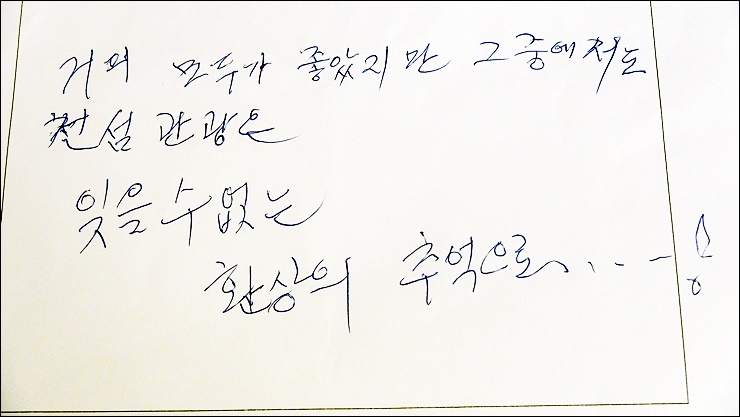 거의 모두가 좋았지만 그 중에서도
섬 관광은
잊을 수 없는
환상의 추억으로.....!